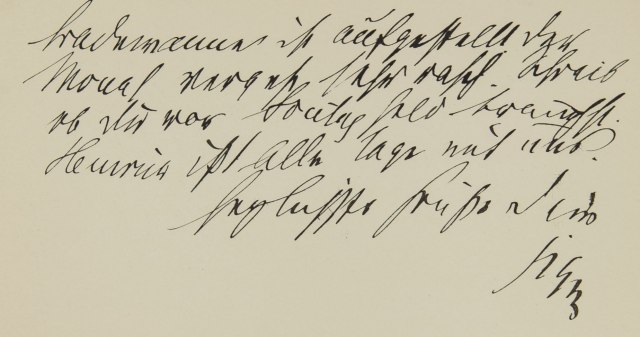 Badewanne ist aufgestellt. Der
Monat vergeht sehr rasch. Schreib
ob Du vor Sonntag Geld brauchst.
Heinrich ißt alle Tage mit uns.
Herzlichste Grüße Dein